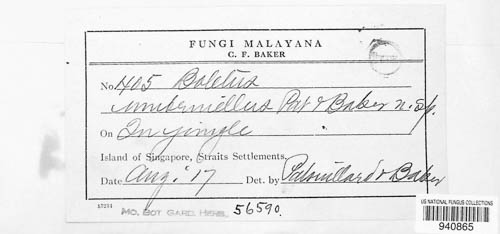 FUNGI MALAYANA
C. F. BAKER
No. 405 Boletus
umbrinellus Pat & Baker n. sp.
On In jungle
Island of Singapore, Straits Settlements.
Date Aug. '17 Det. by Patouillard & Baker
MO. BOT GARD. HERB. 56590.
US NATIONAL FUNGUS COLLECTIONS
940865